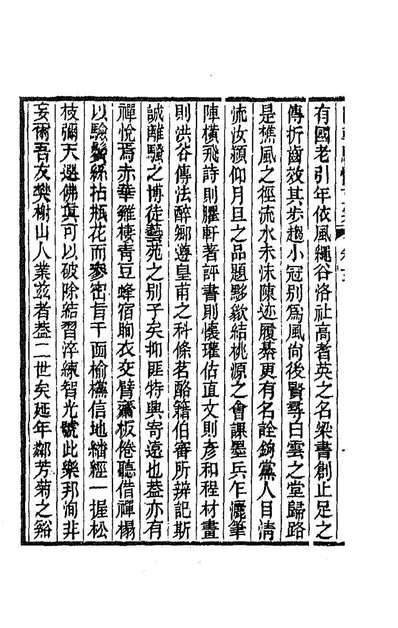 有國老引年依風繩谷洛社高耆英之名梁書創止足之
傳折齒效其步趨小冠別為風尚後賢尋白雲之堂歸路
是樵風之徑流水未沬陳迹履綦更有名詮鉤黨人目清
流汝潁仰月旦之品題黟歙結桃源之會課墨兵乍灑筆
陣橫飛詩則臞軒著評書則懷瓘估直文則彥和程材畫
則洪谷傳法醉鄉遵皇甫之科條茗酪籍伯審所辨記斯
誠雕騷之博徒藝苑之別子矣抑匪特興寄遠也葢亦有
禪悅焉赤華雞棲青豆蜂宿晌衣交臂齋板倦聽借禪榻
以驗鬢絲拈瓶花而參密旨千面榆欓信地繙經一握松
枝彌天選佛眞可以破除結習淬練智光號此樂邦洵非
妄爾吾友樊榭山人業茲者葢二世矣延年鄰芳菊之谿